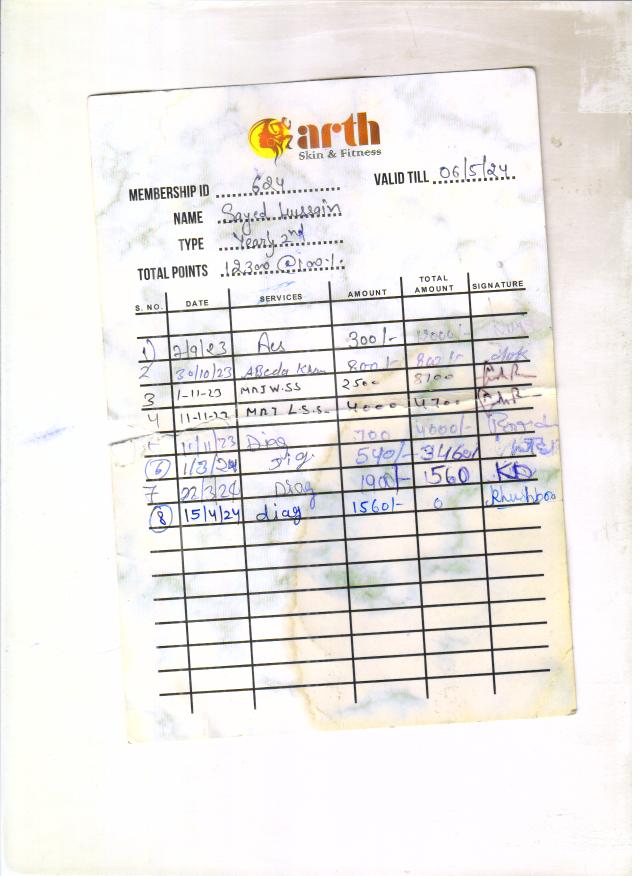 arth
Skin & Fitness
MEMBERSHIP ID 624 VALID TILL 06/5/24
NAME Sayed Hussain
TYPE Yearly 2nd
TOTAL POINTS 12300 @100%
S. NO. DATE SERVICES AMOUNT TOTAL AMOUNT SIGNATURE
1) 7/9/23 300/-
2 30/10/23 ABeda Khan 800/-
3 1-11-23 2500 8700
4 11-11-23 4000 4700
11/11/23 Diag 700 4000/-
6 1/3/24 540/- 3460/-
7 22/3/24 Diag 1900/- 1560 KD
8 15/4/24 diag 1560/- 0 Khushboo